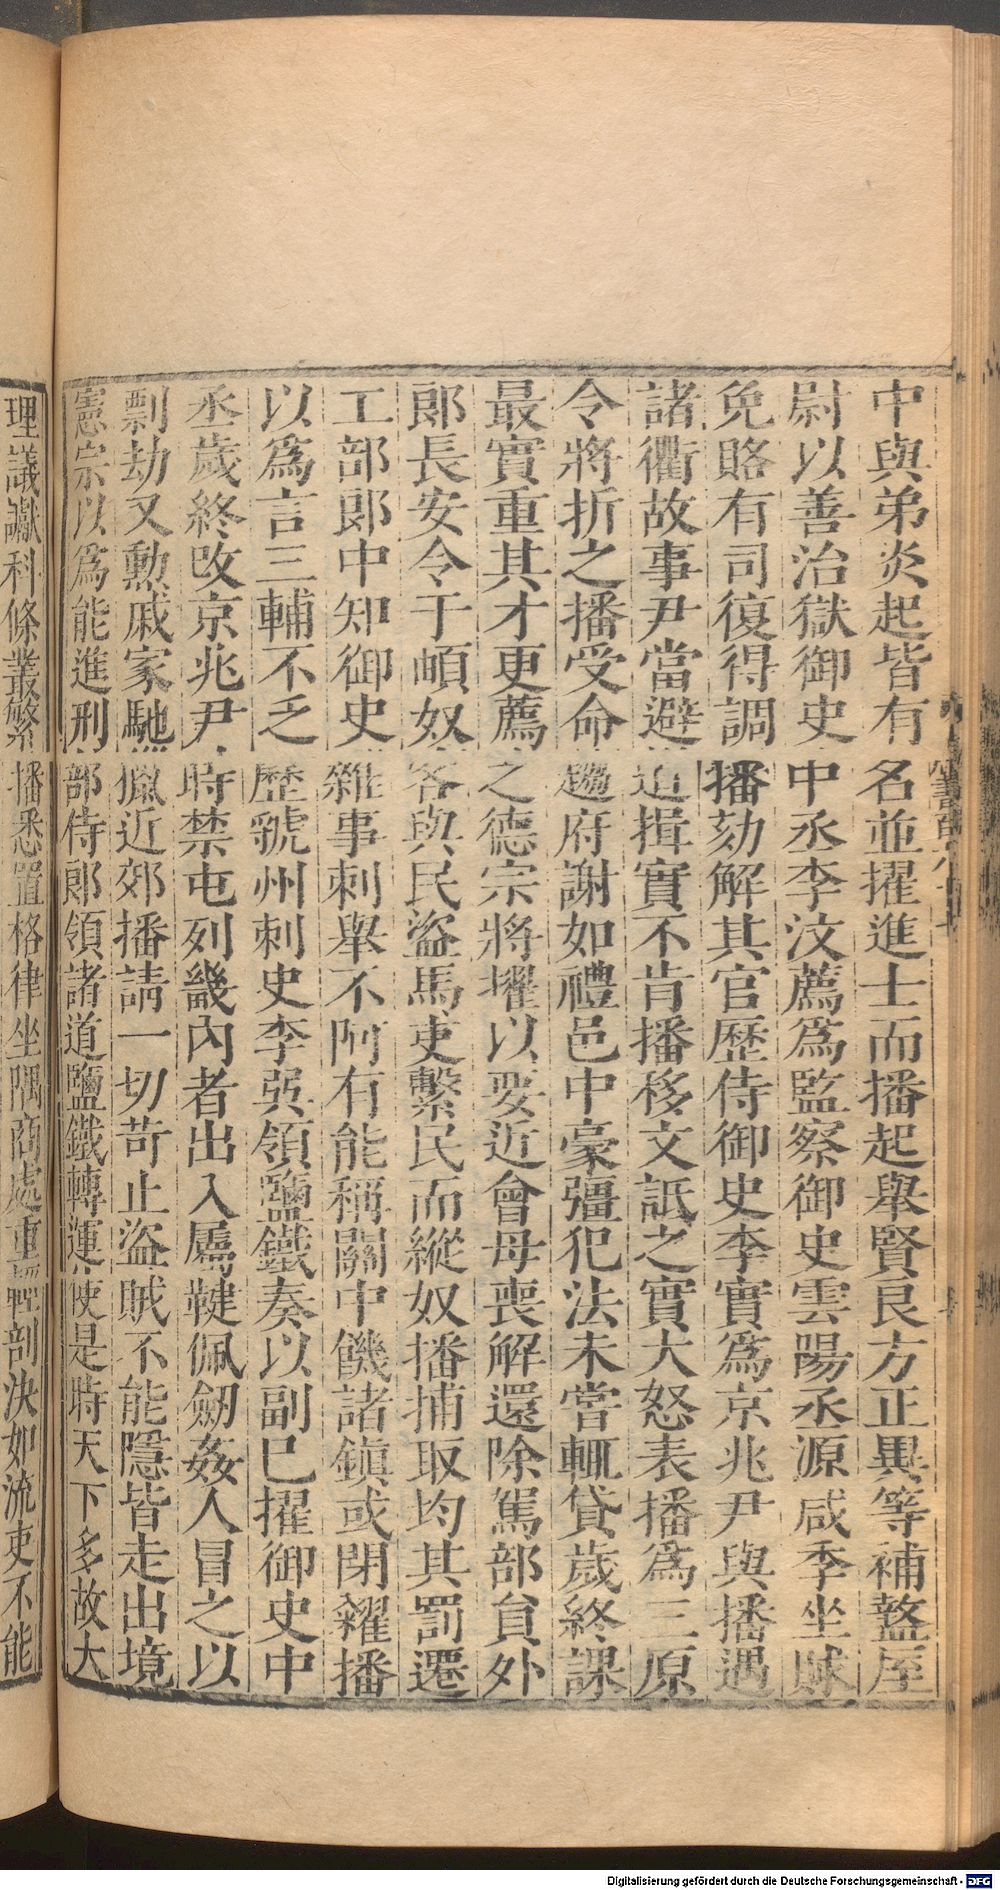 中與弟炎起皆有名並擢進士而播起舉賢良方正異等補盩厔
尉以善治獄御史中丞李汶薦爲監察御史雲陽丞源咸季坐賕
免賂有司復得調播劾解其官歷侍御史李實爲京兆尹與播遇
諸衢故事尹當避道揖實不肯播移文詆之實大怒表播爲三原
令將折之播受命趨府謝如禮邑中豪彊犯法未嘗輒貸歲終課
最實重其才更薦之德宗將擢以要近會母喪解還除駕部員外
郎長安令于頔奴客與民盜馬吏繫民而縱奴播捕取均其罰遷
工部郎中知御史雜事刺舉不阿有能稱關中饑諸鎮或閉糴播
以爲言三輔不乏歷虢州刺史李巽領鹽鐵奏以副己擢御史中
丞歲終改京兆尹時禁屯列畿內者出入屬鞬佩劒姦人冒之以
剽劫又勲戚家馳獵近郊播請一切苛止盜賊不能隱皆走出境
憲宗以爲能進刑部侍郎領諸道鹽鐵轉運使是時天下多故大
理議讞科條叢繁播悉置格律坐隅商處重輕剖決如流吏不能
Digitalisierung gefördert durch die Deutsche Forschungsgemeinschaft - DFG